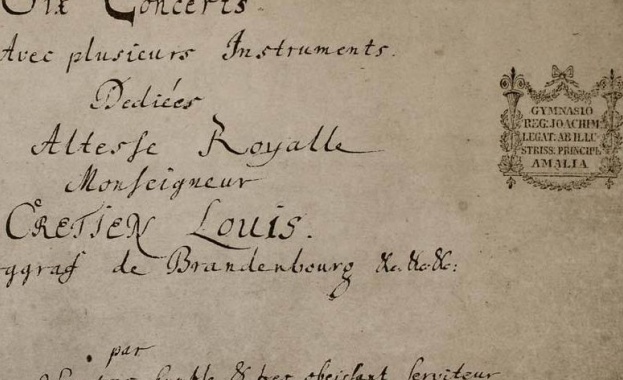 Six Concerts
Avec plusieurs Instruments.
Dediées
Altesse Royalle
Monseigneur
CRETIEN LOUIS.
de Brandenbourg &c. &c. &c:
par
& tres obeissant serviteur
GYMNASIO
REG: JOACHIM
LEGAT: AB ILLU-
STRISS: PRINCIPE
AMALIA